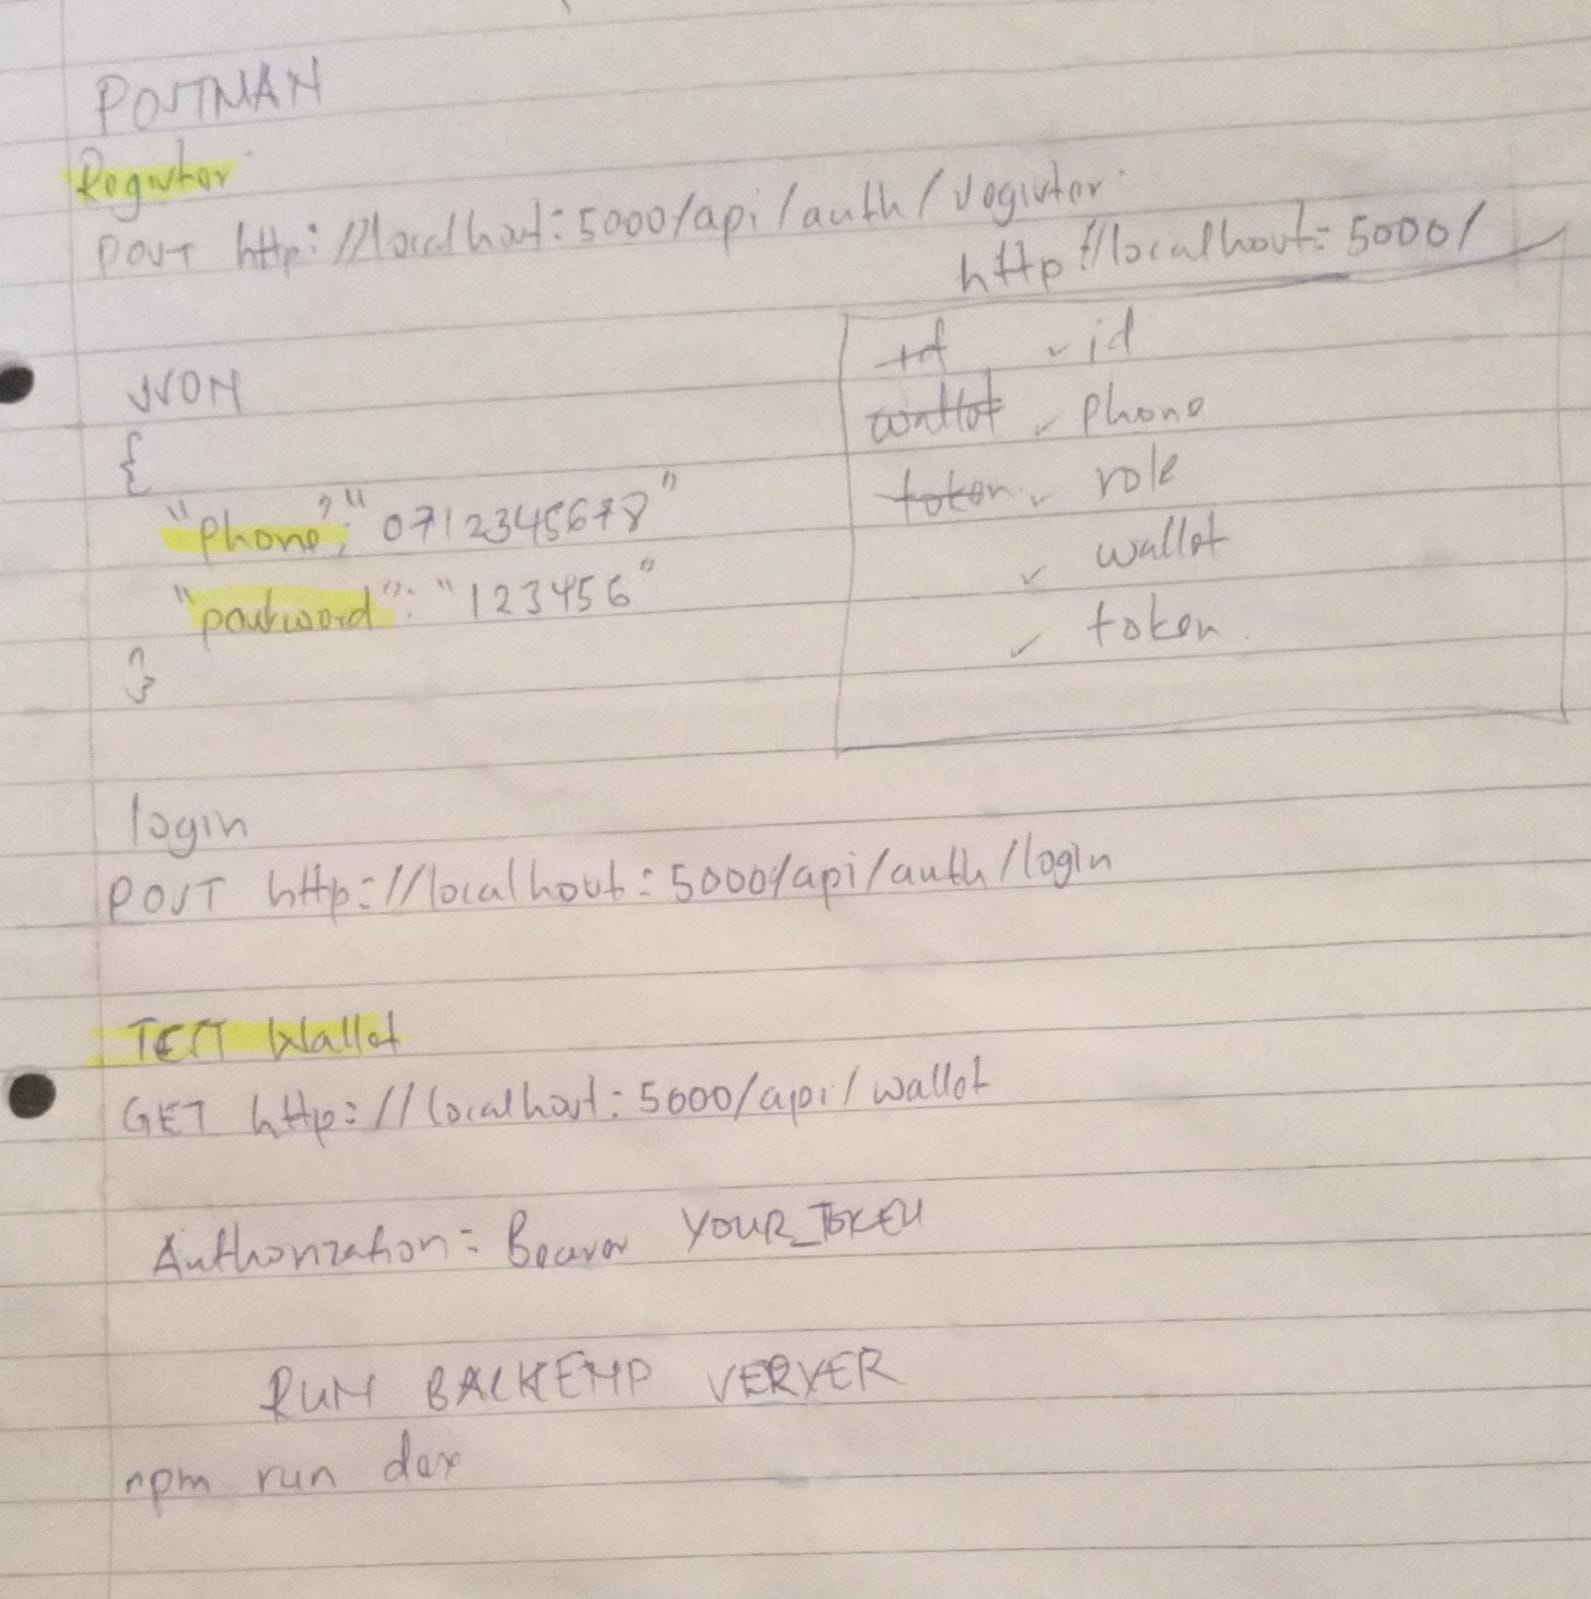 POSTMAN
Register
POST http://localhost:5000/api/auth/register
http://localhost:5000/
JSON
{
"phone": "0712345678"
"password": "123456"
}
id ✓ id
wallet ✓ phone
token ✓ role
✓ wallet
✓ token
login
POST http://localhost:5000/api/auth/login
TEST Wallet
GET http://localhost:5000/api/wallet
Authorization: Bearer YOUR_TOKEN
RUN BACKEND SERVER
npm run dev